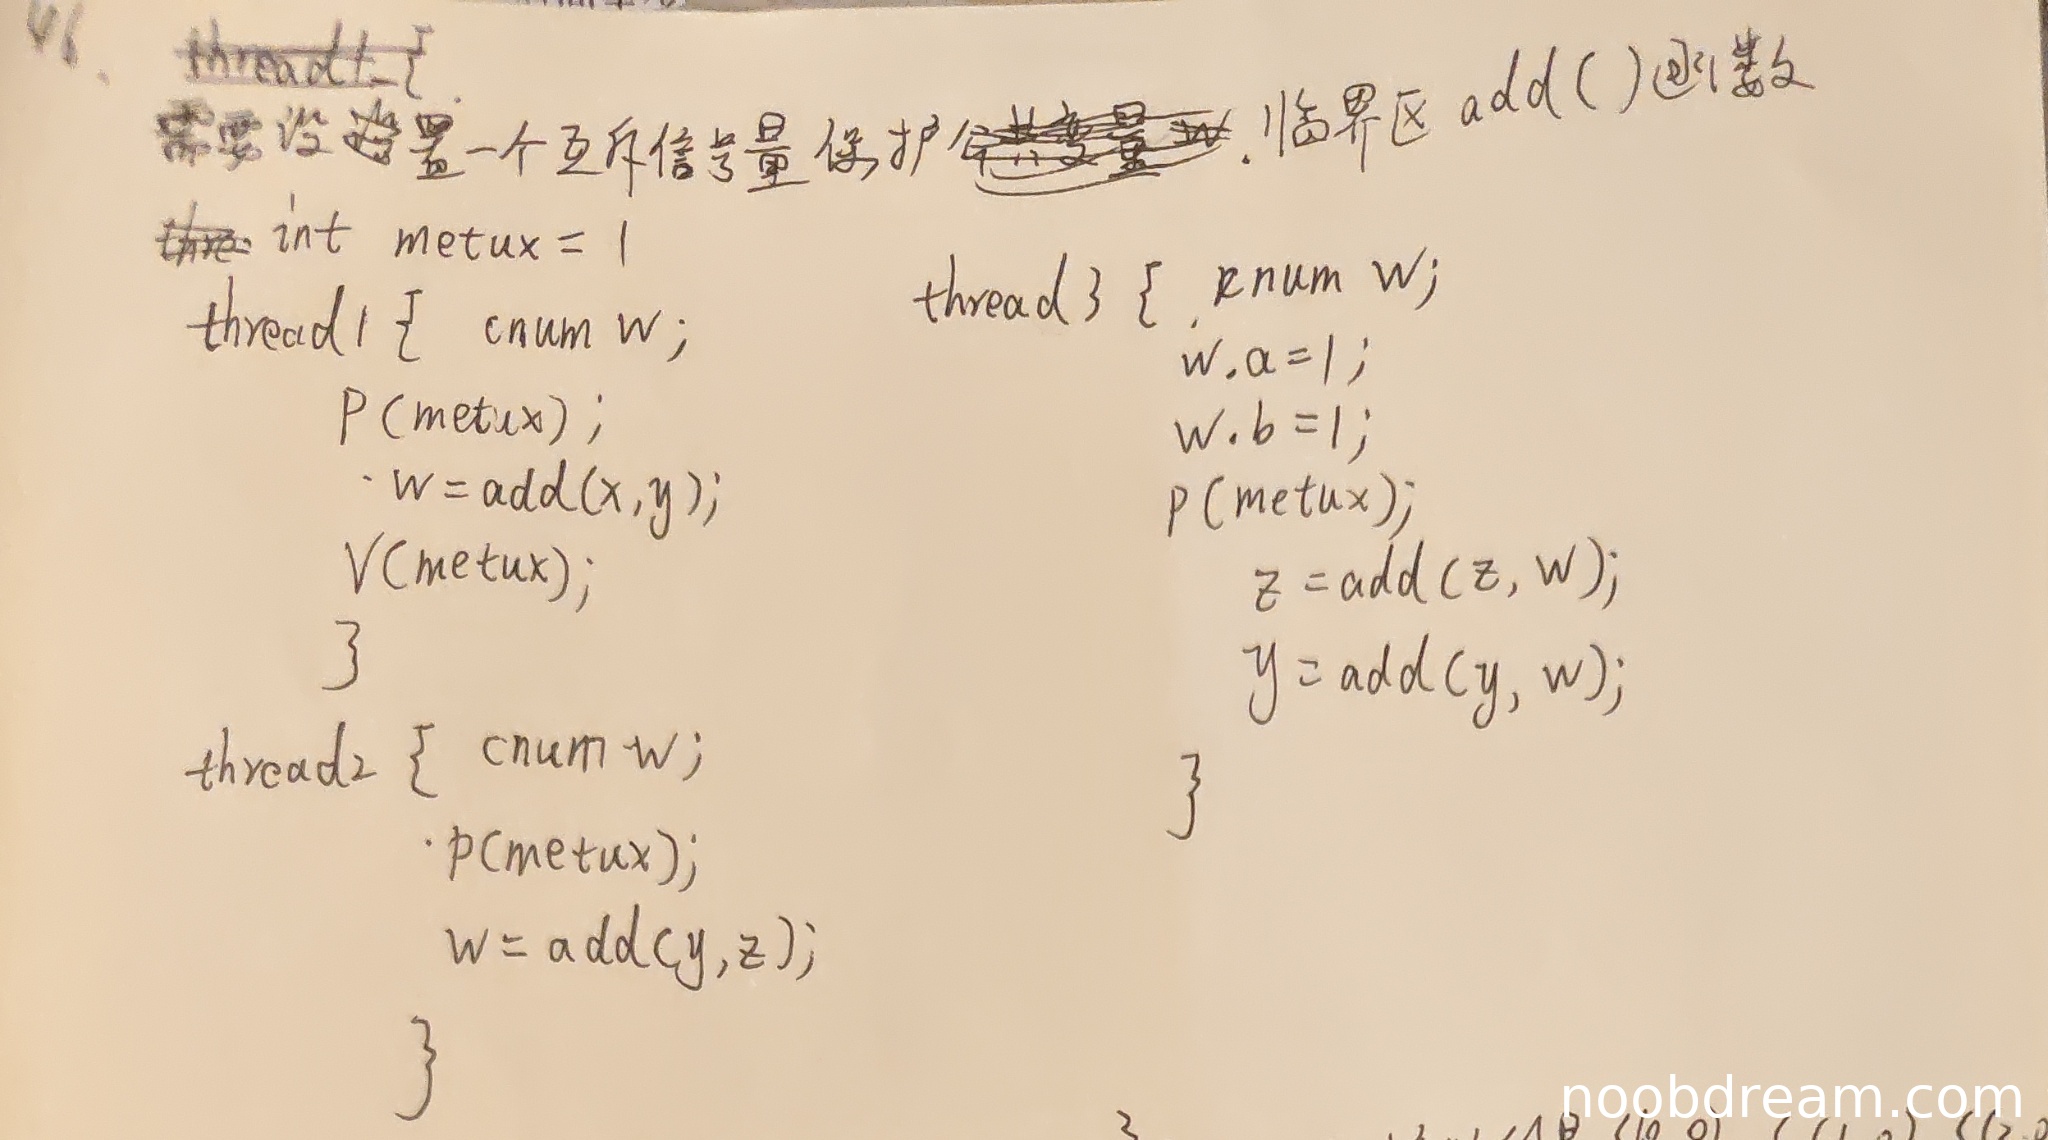 46.
thread1 {
需要设置一个互斥信号量保护 临界区 add()函数
int metux = 1
thread1 { cnum w;
P(metux);
w = add(x, y);
V(metux);
}
thread2 { cnum w;
P(metux);
w = add(y, z);
}
thread3 { cnum w;
w.a = 1;
w.b = 1;
P(metux);
z = add(z, w);
y = add(y, w);
}
noobdream.com